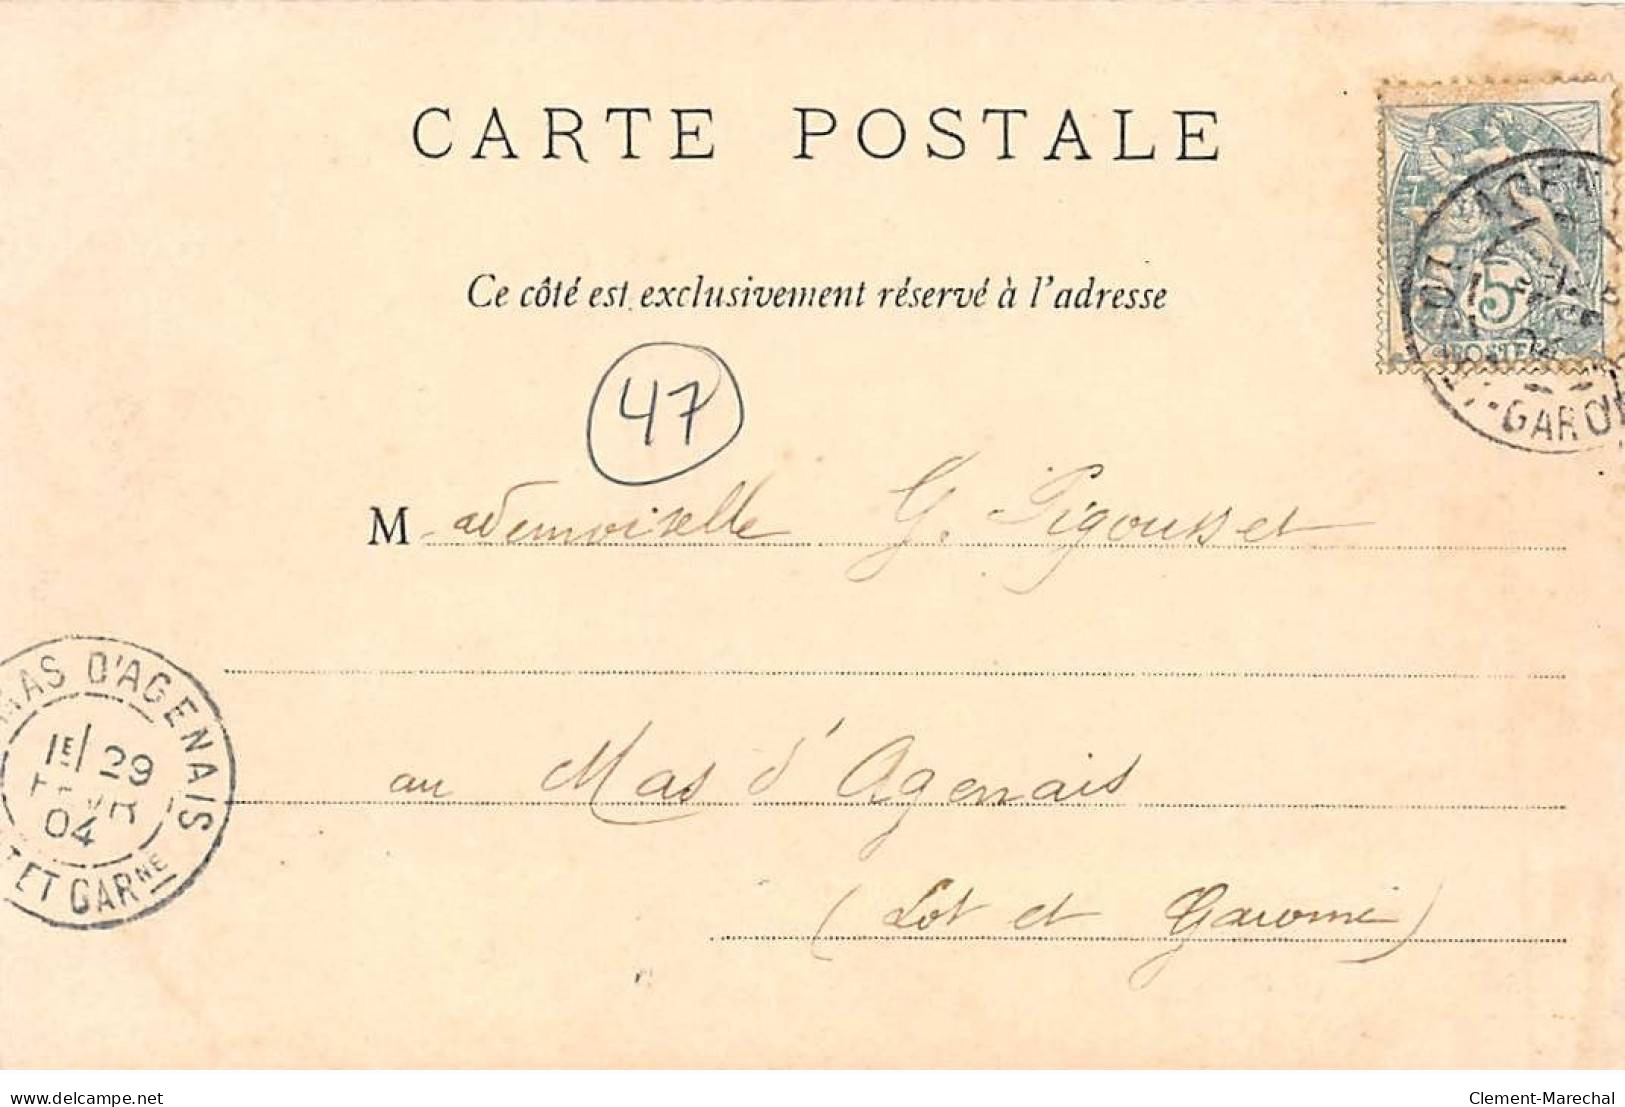 CARTE POSTALE
Ce côté est exclusivement réservé à l'adresse
47
Mademoiselle G. Pigousset
au Mas d'Agenais
(Lot et Garonne)
MAS D'AGENAIS
1E 29
FEVR
04
ET GARNE
AGEN
5
POSTE
-GARON
delcampe.net
Clement-Marechal